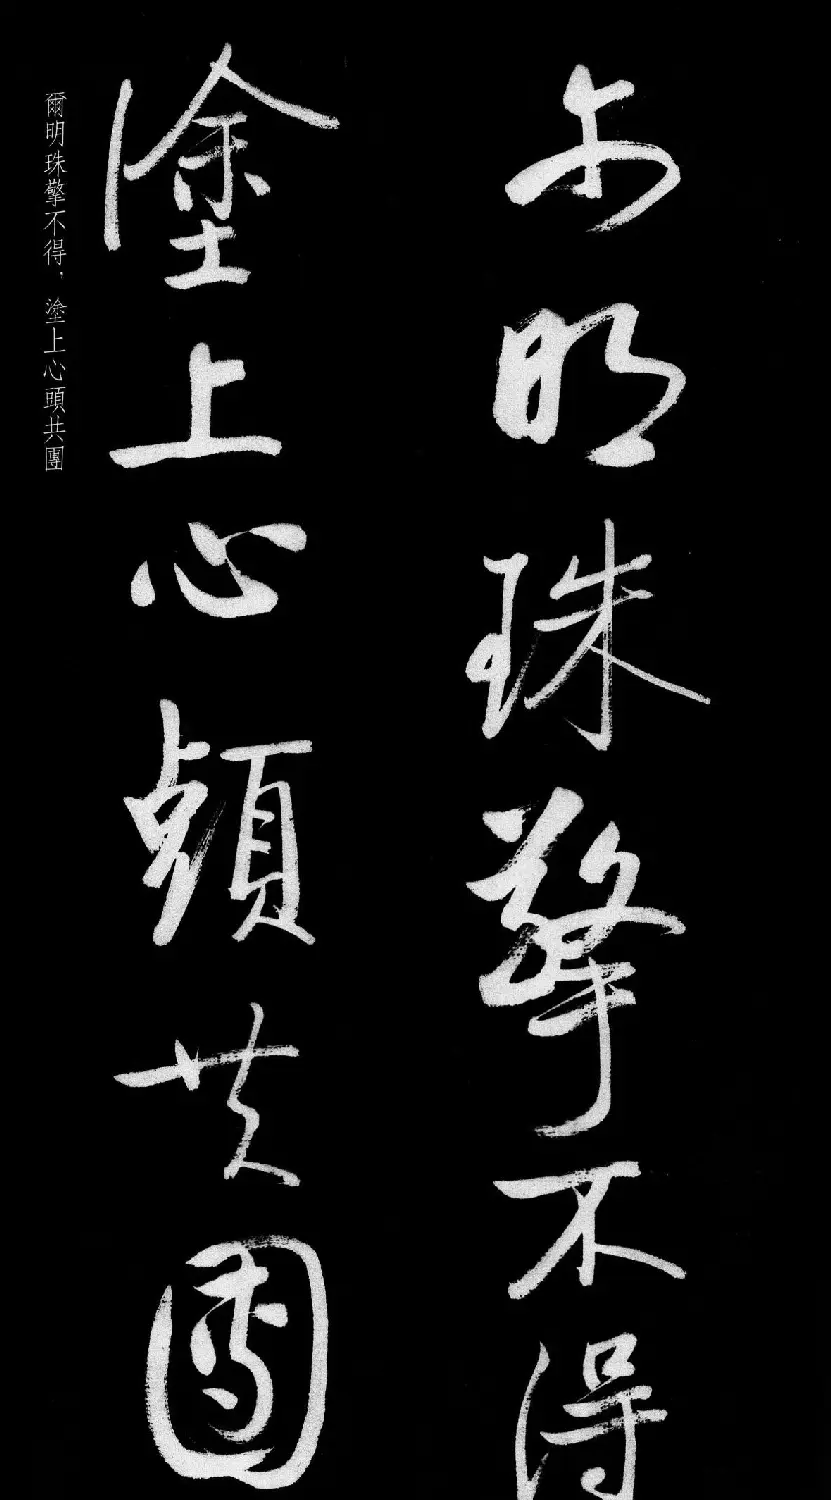 尔明珠擎不得
塗上心頭共團
爾明珠擎不得，塗上心頭共團